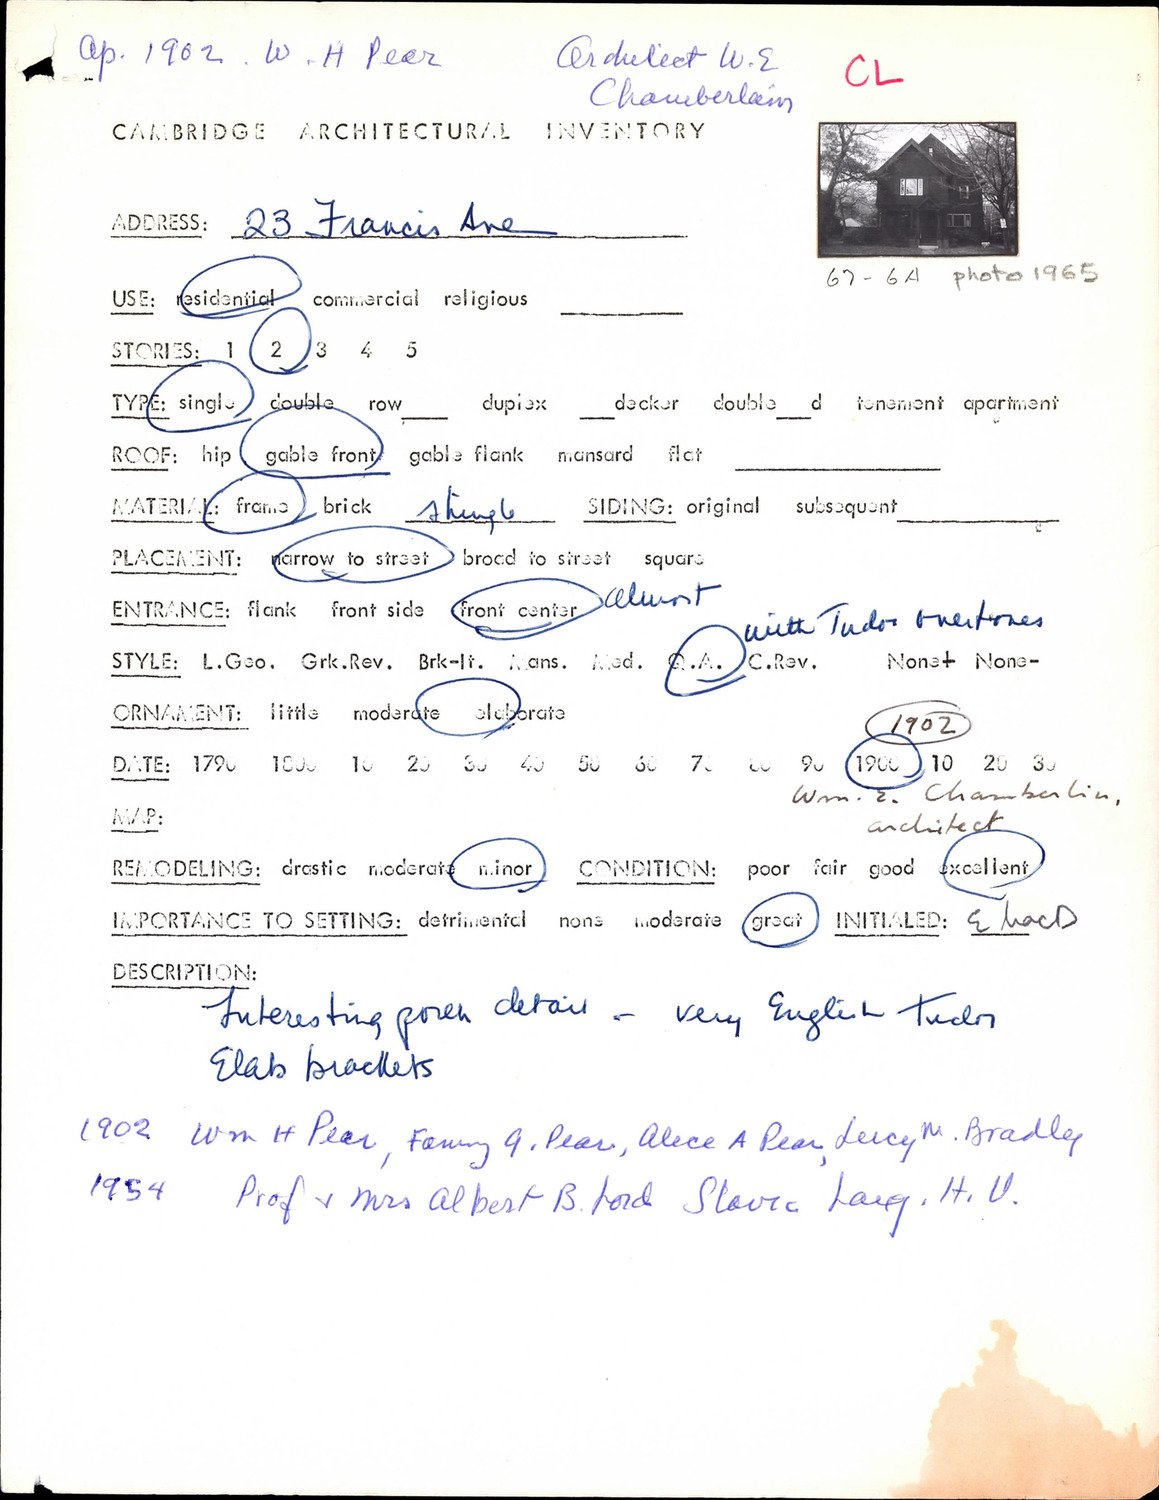 Ap. 1902. W. H Pear
Architect W. E
Chamberlain
CL
CAMBRIDGE ARCHITECTURAL INVENTORY
67-6A photo 1965
ADDRESS: 23 Francis Ave
USE: residential commercial religious
STORIES: 1 2 3 4 5
TYPE: single double row___ duplex ___decker double___d tenement apartment
ROOF: hip gable front gable flank mansard flat
MATERIAL: frame brick shingle SIDING: original subsequent
PLACEMENT: narrow to street broad to street square
ENTRANCE: flank front side front center almost
with Tudor overtones
STYLE: L.Geo. Grk.Rev. Brk-It. Mans. Med. Q.A. C.Rev. None+ None-
ORNAMENT: little moderate elaborate
1902
DATE: 1790 1800 10 20 30 40 50 60 70 80 90 1900 10 20 30
Wm. E. Chamberlin,
architect
MAP:
REMODELING: drastic moderate minor CONDITION: poor fair good excellent
IMPORTANCE TO SETTING: detrimental none moderate great INITIALED: E MacD
DESCRIPTION:
Interesting porch detail - very English Tudor
Elab brackets
1902 Wm H Pear, Fanny A. Pear, Alice A Pear, Lucy M. Bradley
1954 Prof + Mrs Albert B. Lord Slavic Lang. H. U.